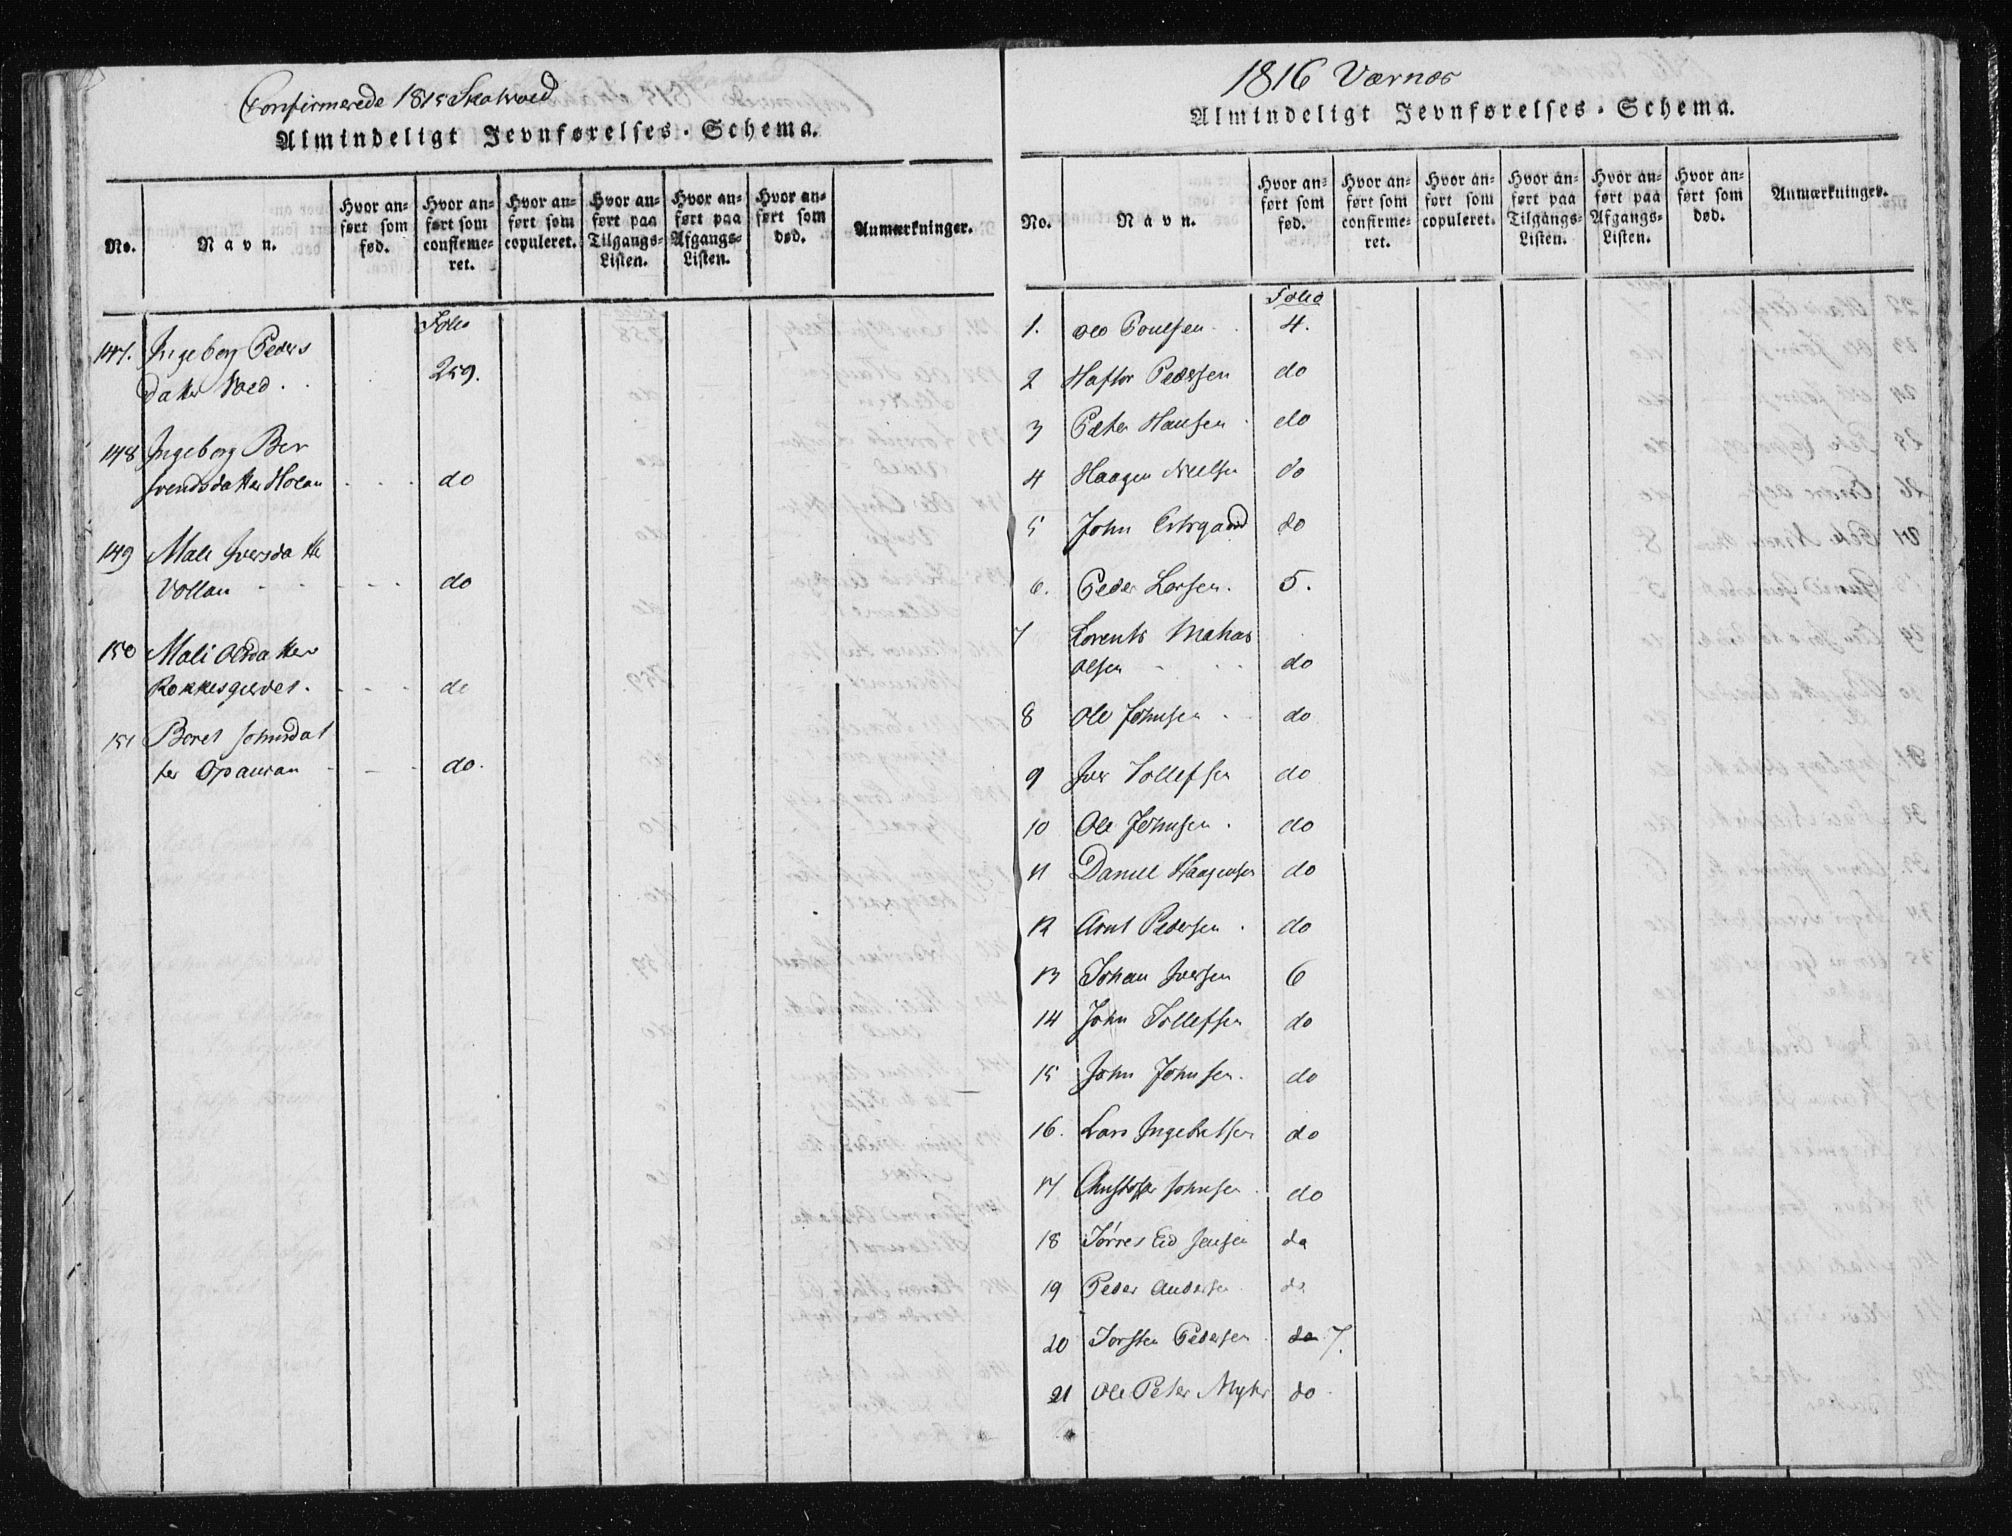 Confirmerede 1815 Skatvold
Almindeligt Jevnførelses-Schema.
No. Navn. Hvor anført som fød. Hvor anført som confirmeret. Hvor anført som copuleret. Hvor anført paa Tilgangs-Listen. Hvor anført paa Afgangs-Listen. Hvor anført som død. Anmærkninger.
Folio
147. Ingeborg Peders
datter Vold . . 259.
148 Ingeborg Ber
svendsdatter Holan . . . do
149 Mali Iversdatter
Vollan - - - - do
150 Mali Olsdatter
Rokkesgerdet. - - - do
151 Beret Johnsdat
ter Opauran - - - do.
1816 Værnes
Almindeligt Jevnførelses-Schema.
No. Navn. Hvor anført som fød. Hvor anført som confirmeret. Hvor anført som copuleret. Hvor anført paa Tilgangs-Listen. Hvor anført paa Afgangs-Listen. Hvor anført som død. Anmærkninger.
Folio
1. Ole Poulsen . . 4.
2 Haftor Pedersen do
3 Peter Hansen . do
4 Haagen Nielsen do
5 John do
6. Peder Larsen. 5.
7 Lorents Mathias
Olsen - . . do
8 Ole Johnsen . . do
9 Iver Tollefsen do
10 Ole Johnsen . do
11 Daniel Haagensen do
12 Arnt Pedersen . do
13 Johan Iversen 6
14 John Tollefsen do
15 John Johnsen. do
16. Lars Ingebretsen do
17 Christopher Johnsen . do
18 Torres Eid Jensen do
19 Peder Andersen do
20 Torsten Pedersen . do 7.
21 Ole Peter Myhr do